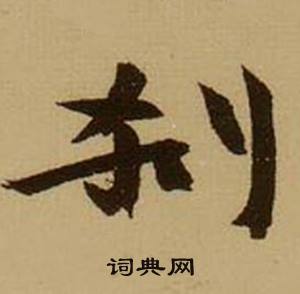 刹
词典网